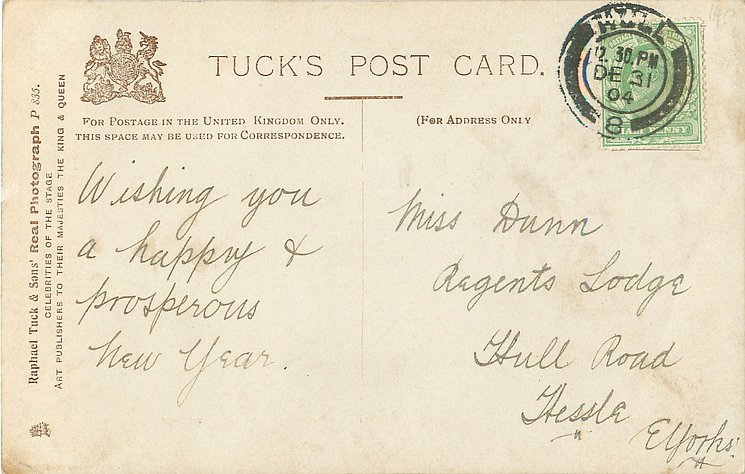 TUCK'S POST CARD.
FOR POSTAGE IN THE UNITED KINGDOM ONLY.
THIS SPACE MAY BE USED FOR CORRESPONDENCE.
(FOR ADDRESS ONLY
HULL
12.30.PM
DE 31
04
8
HALF PENNY
Raphael Tuck & Sons' Real Photograph P 835.
CELEBRITIES OF THE STAGE
ART PUBLISHERS TO THEIR MAJESTIES THE KING & QUEEN
Wishing you
a happy &
prosperous
New Year.
Miss Dunn
Regents Lodge
Hull Road
Hessle
EYorks.